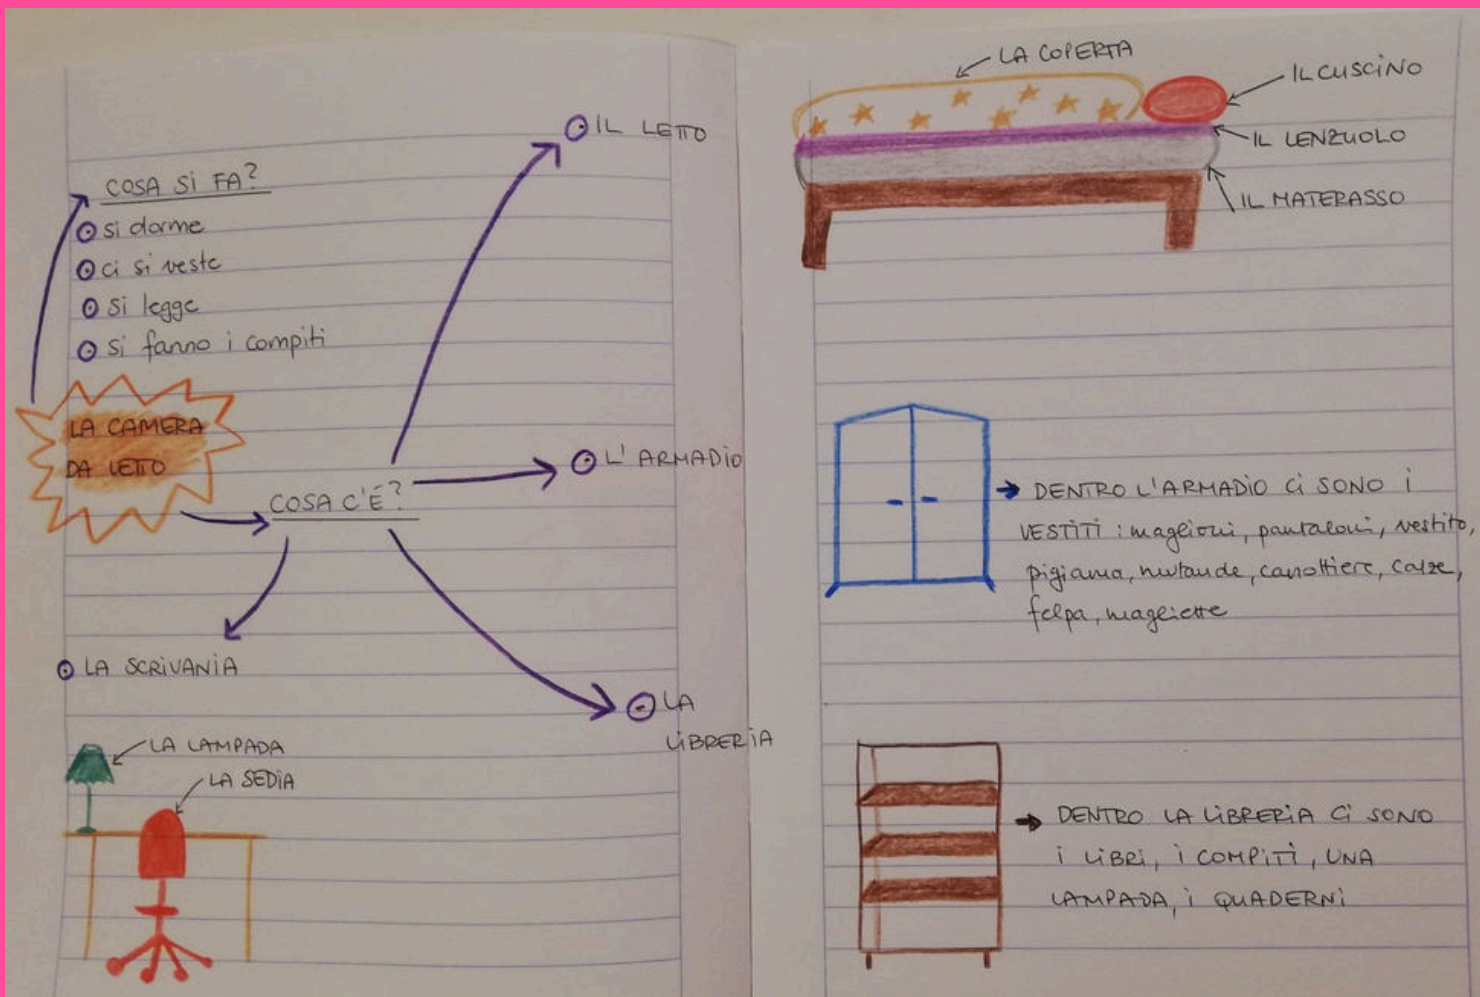 COSA SI FA?
si dorme
ci si veste
si legge
si fanno i compiti
LA CAMERA
DA LETTO
COSA C'É?
IL LETTO
L'ARMADIO
LA SCRIVANIA
LA
LIBRERIA
LA LAMPADA
LA SEDIA
LA COPERTA
IL CUSCINO
IL LENZUOLO
IL MATERASSO
DENTRO L'ARMADIO CI SONO I
VESTITI: maglioni, pantaloni, vestito,
pigiama, mutande, canottiere, calze,
felpa, magliette
DENTRO LA LIBRERIA CI SONO
I LIBRI, I COMPITI, UNA
LAMPADA, I QUADERNI